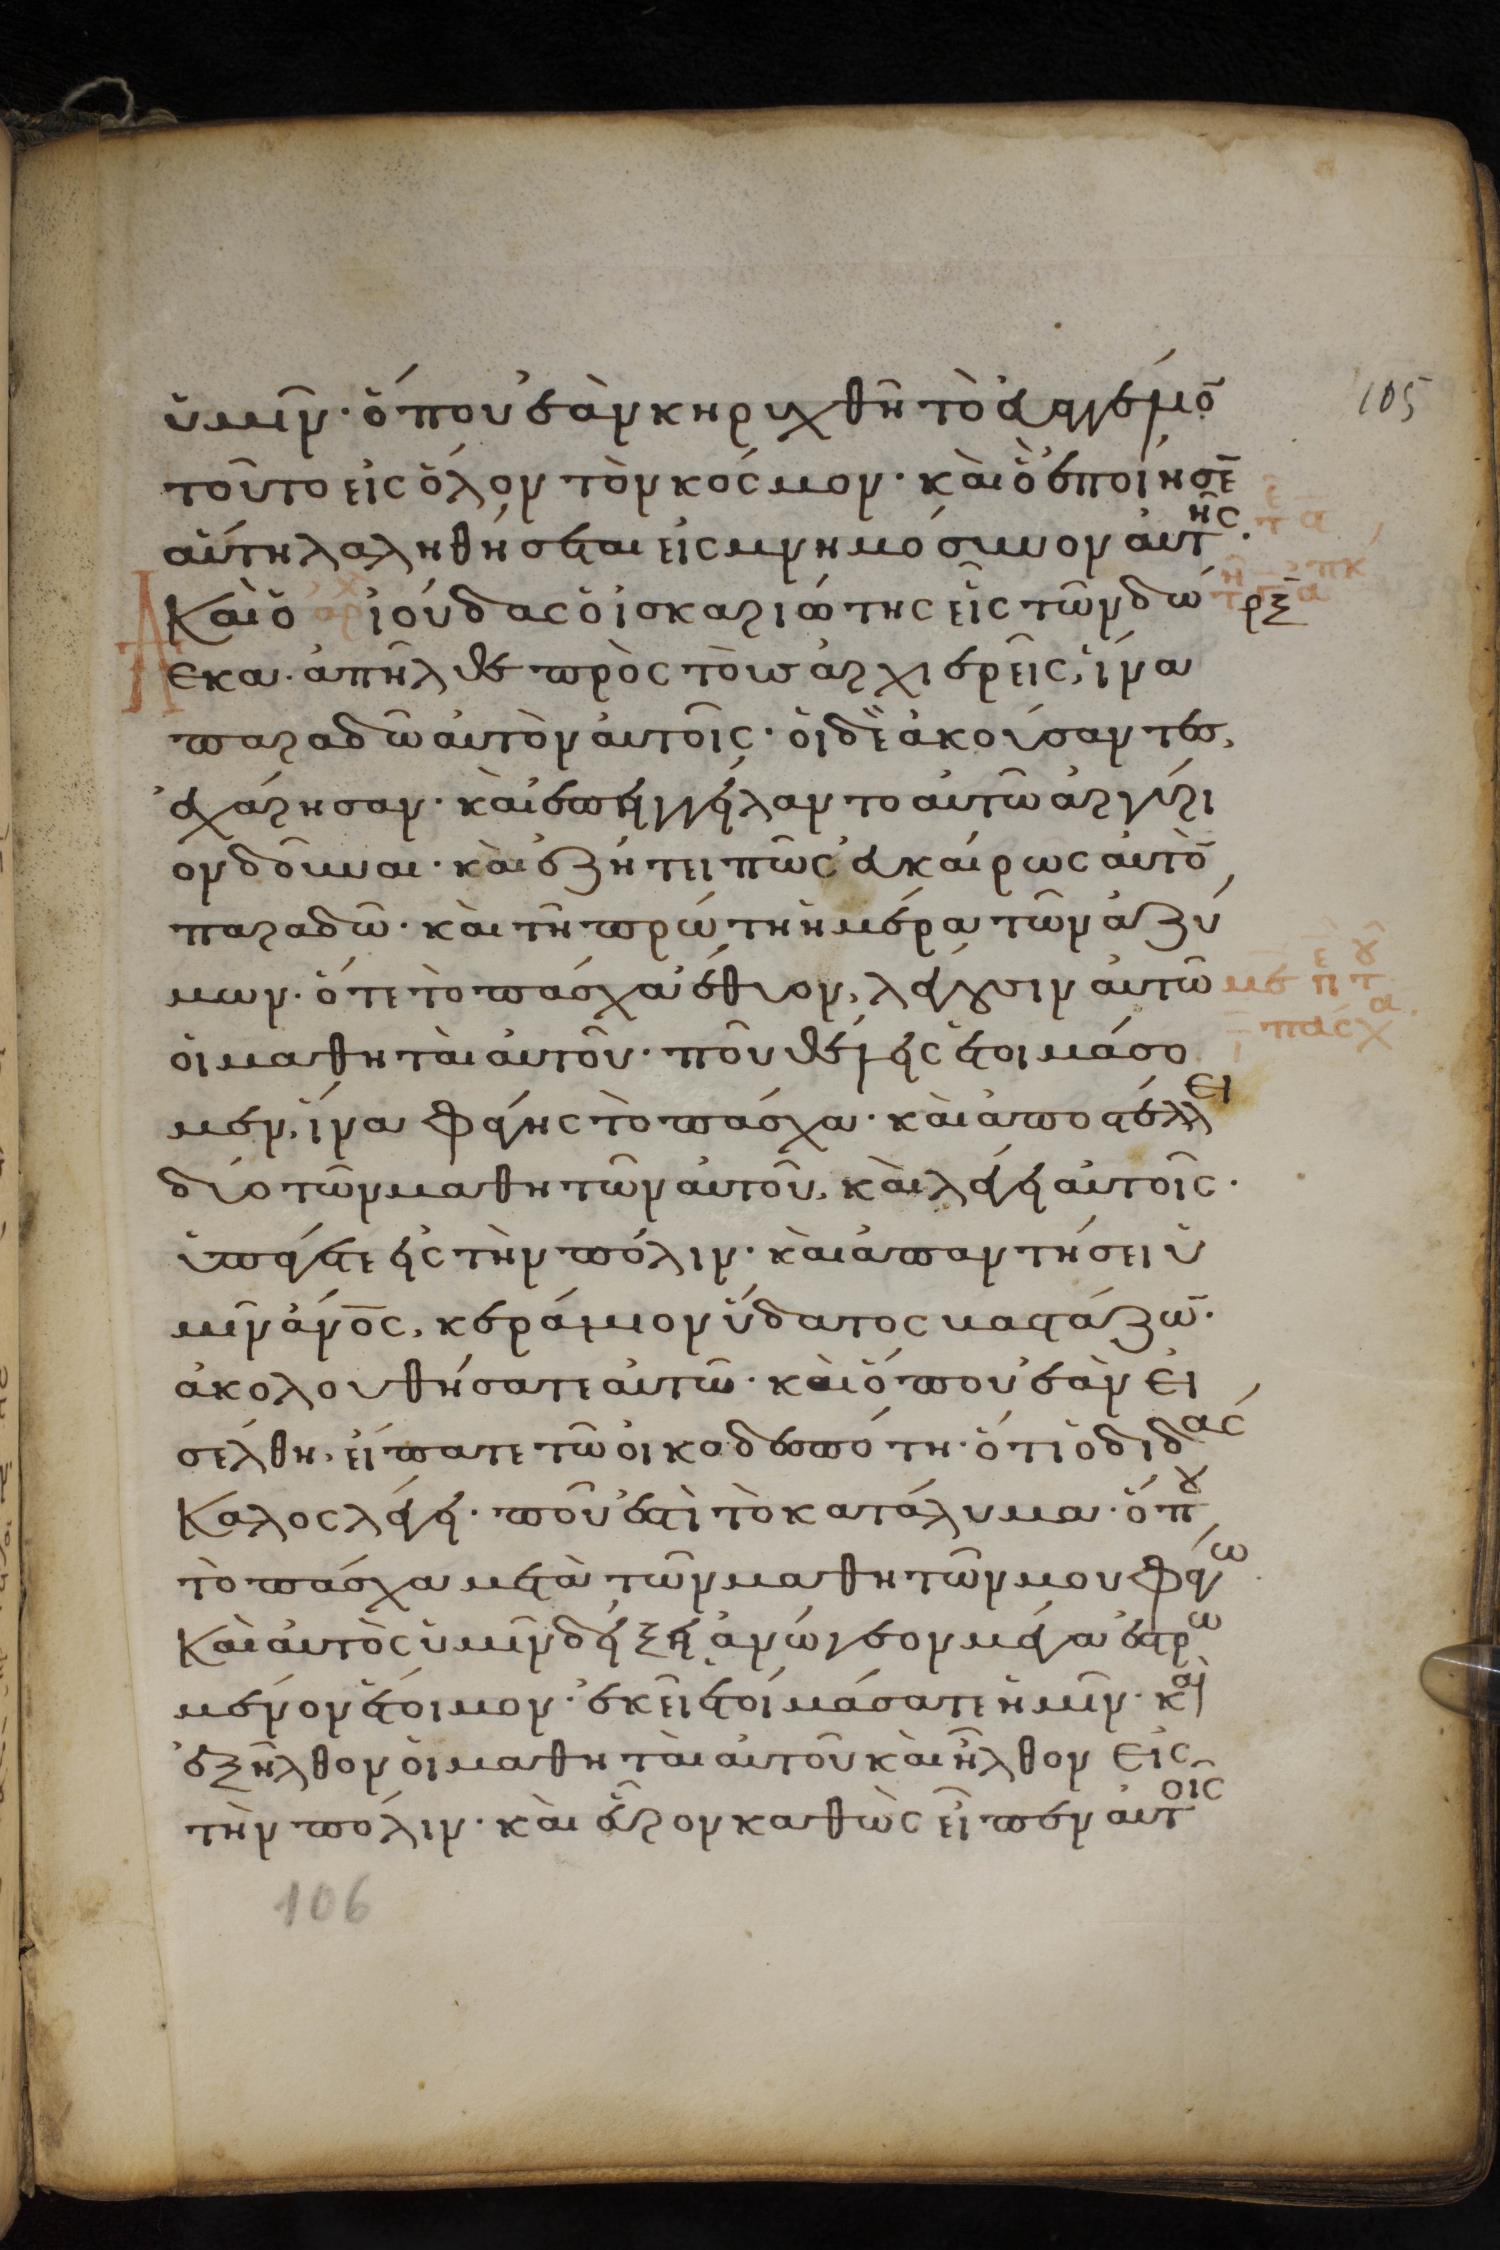 105
ὑμῖν· ὅπου ἐὰν κηρυχθῆ τὸ ἐυαγγέλιο̄
τοῦτο εἰς ὅλον τὸν κόσμον· καὶ ὃ ἐποίησε̄
αὕτη λαληθήσεται εἰς μνημόσυνον αὐτῆς·
Καὶ ὁ ἰούδας ὁ ἰσκαριώτης εἷς τῶν δώ
εκα· ἀπῆλθε πρὸς τοὺς ἀρχιερεῖς, ἵνα
παραδῶ αὐτὸν αὐτοῖς· οἱ δὲ ἀκούσαντες,
ἐχάρησαν· καὶ ἐπηγγείλαντο αὐτῶ ἀργύρι
ον δοῦναι· καὶ ἐζήτει πῶς ἐυκαίρως αὐτὸ̄
παραδῶ· καὶ τῆ πρώτη ἡμέρα τῶν ἀζύ
μων· ὅτε τὸ πάσχα ἔθυον, λέγουσιν αὐτῶ
οἱ μαθηταὶ αὐτοῦ· ποῦ θέλεις ἑτοιμάσο
μεν, ἵνα φάγης τὸ πάσχα· καὶ ἀποστέλλει
δύο τῶν μαθητῶν αὐτοῦ, καὶ λέγει αὐτοῖς·
ὑπάγετε εἰς τὴν πόλιν· καὶ ἀπαντήσει ὑ
μῖν ἄν̅ο̅ς, κεράμιον ὕδατος βαστάζων·
ἀκολουθήσατε αὐτῶ· καὶ ὅπου ἐὰν εἰ
σέλθη, εἴπατε τῶ οἰκοδεσπότη· ὅτι ὁ διδάσ
Καλος λέγει· ποῦ ἐστὶ τὸ κατάλυμα· ὅπου
τὸ πάσχα μετὰ τῶν μαθητῶν μου φάγω
Καὶ αὐτὸς ὑμῖν δείξει ἀνώγεον μέγα ἐστρω
μένον ἕτοιμον· ἐκεῖ ἑτοιμάσατε ἡμῖν· καὶ
ἐξῆλθον οἱ μαθηταὶ αὐτοῦ καὶ ἦλθον εἰς
τὴν πόλιν· καὶ εὗρον καθὼς εἶπεν αὐτοῖς
106